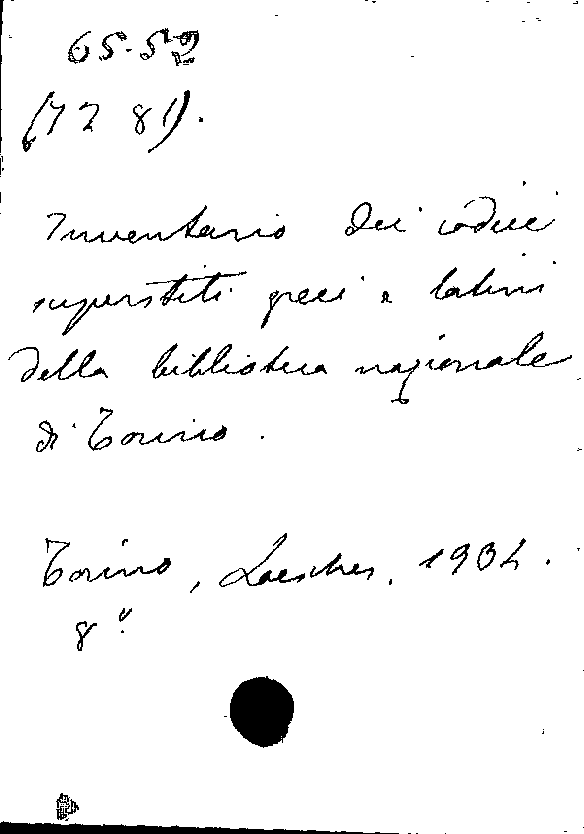 65.52
(72 81).
Inventario dei codici
superstiti greci e latini
della biblioteca nazionale
di Torino.
Torino, Loescher, 1904.
8°.